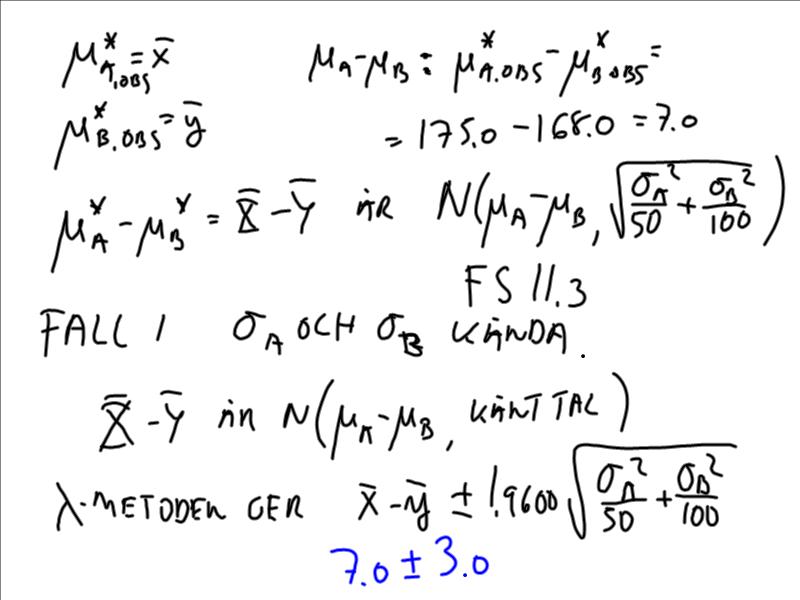 μ*A,OBS = x̄
μA-μB : μ*A.OBS - μ*B.OBS =
μ*B.OBS = ȳ
= 175.0 - 168.0 = 7.0
μ*A - μ*B = X̄ - Ȳ ÄR N(μA-μB, √(σA²/50 + σB²/100))
FS 11.3
FALL 1 σA OCH σB KÄNDA.
X̄ - Ȳ ÄR N(μA-μB, KÄNT TAL)
λ-METODEN GER x̄ - ȳ ± 1.9600 √(σA²/50 + σB²/100)
7.0 ± 3.0